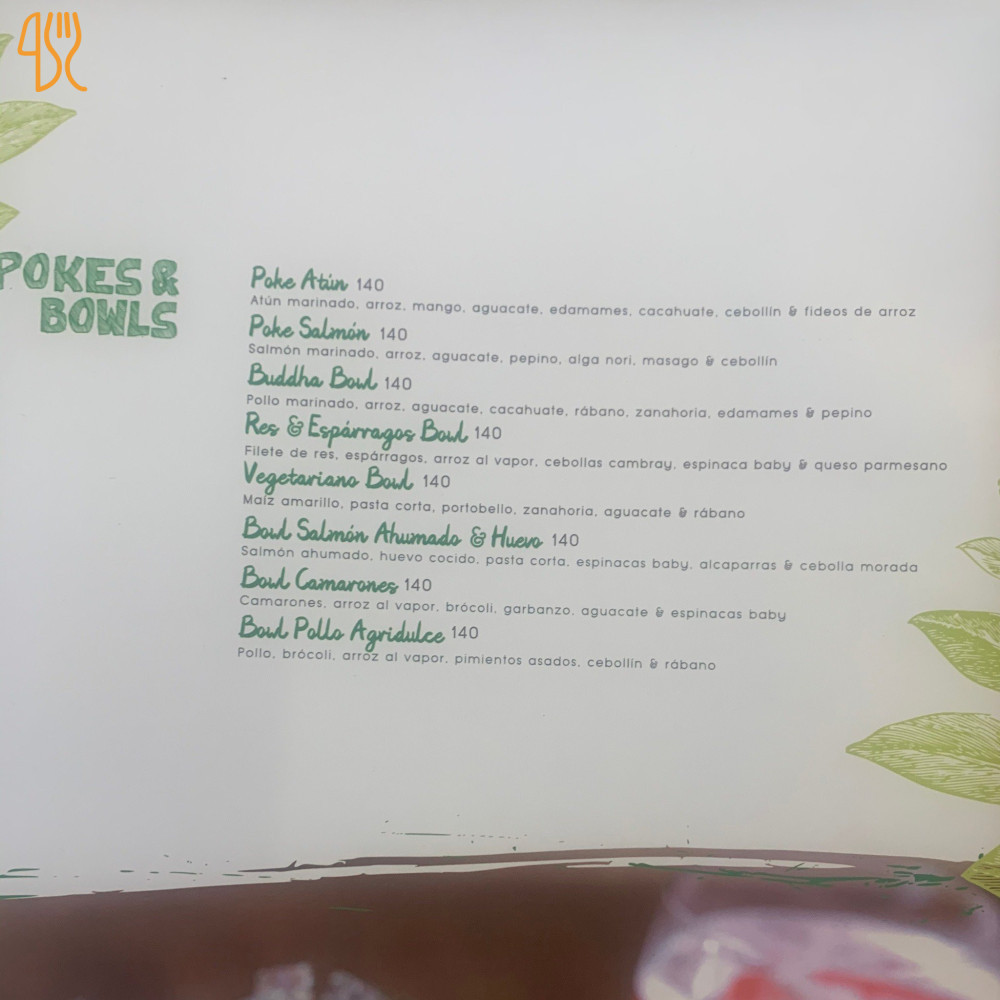 POKES &
BOWLS
Poke Atún 140
Atún marinado, arroz, mango, aguacate, edamames, cacahuate, cebollín & fideos de arroz
Poke Salmón 140
Salmón marinado, arroz, aguacate, pepino, alga nori, masago & cebollín
Buddha Bowl 140
Pollo marinado, arroz, aguacate, cacahuate, rábano, zanahoria, edamames & pepino
Res & Espárragos Bowl 140
Filete de res, espárragos, arroz al vapor, cebollas cambray, espinaca baby & queso parmesano
Vegetariano Bowl 140
Maíz amarillo, pasta corta, portobello, zanahoria, aguacate & rábano
Bowl Salmón Ahumado & Huevo 140
Salmón ahumado, huevo cocido, pasta corta, espinacas baby, alcaparras & cebolla morada
Bowl Camarones 140
Camarones, arroz al vapor, brócoli, garbanzo, aguacate & espinacas baby
Bowl Pollo Agridulce 140
Pollo, brócoli, arroz al vapor, pimientos asados, cebollín & rábano